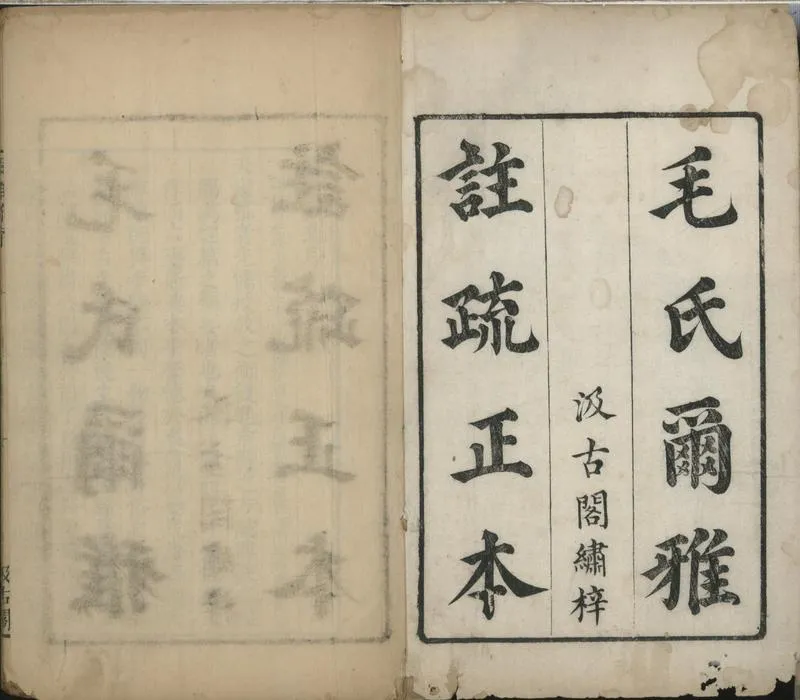 毛氏爾雅
汲古閣繡梓
註疏正本
汲古閣